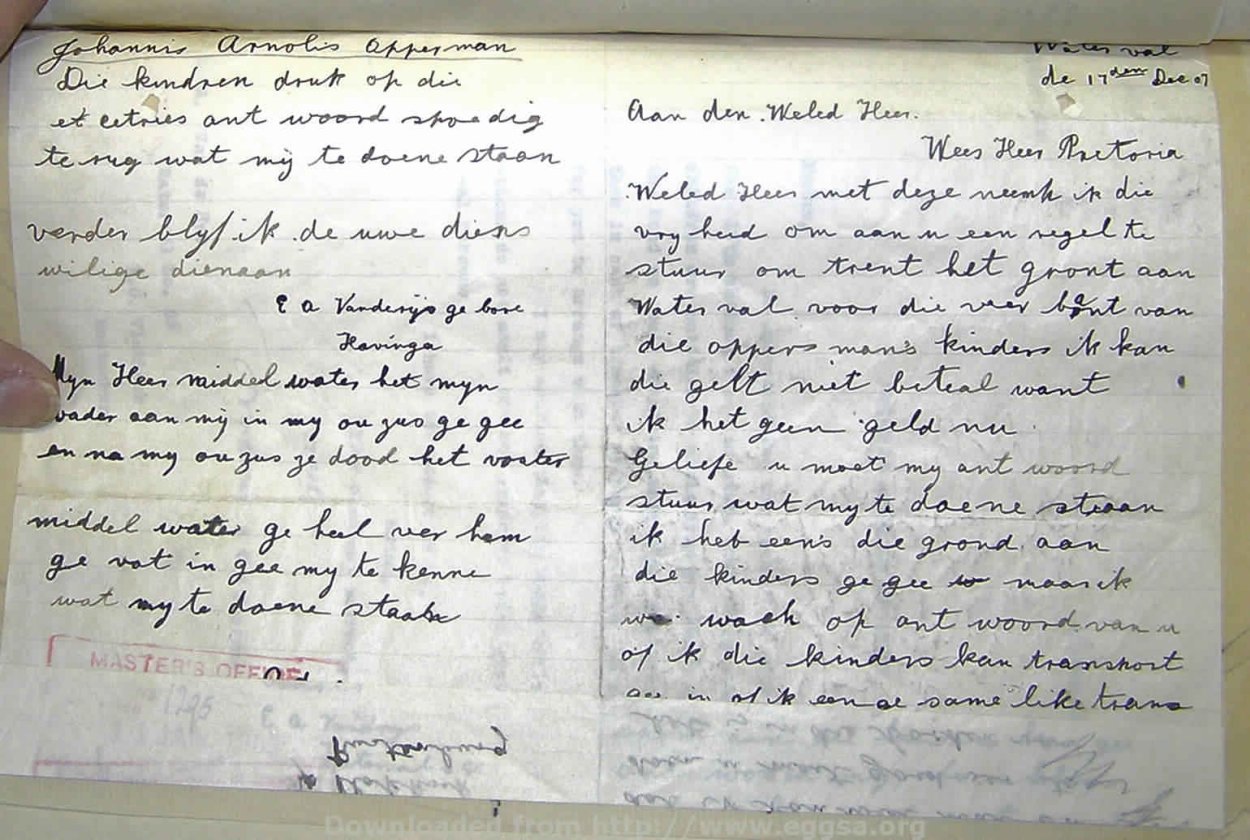 Water val
de 17den Dec 07
Aan den Weled Heer.
Wees Heer Pretoria
Weled Heer met deze neemk ik die
vry heid om aan u een regel te
stuur om trent het gront aan
Water val voor die veer bont van
die oppers man's kinders ik kan
die gelt niet beteal want
ik het geen geld nu.
Geliefe u moet my ant woord
stuur wat my te doene staan
ik heb eens die grond aan
die kinders ge gee maar ik
wach op ant woord van u
of ik die kinders kan transport
gee in of ik een ge same like trans
Johannis Arnolis Opperman
Die kindren druk op die
et cetries ant woord spoedig
te rug wat mij te doene staan
verder blyf ik de uwe diens
wilige dienaan
E a Vanderijs ge bore
Havinga
Myn Heer middel water het myn
vader aan mij in my ou zus ge gee
en na my ou zus ze dood het vaater
middel water ge heel ver hem
ge vat in gee my te kenne
wat my te doene staan
MASTER'S OFFICE
1295
Downloaded from http://www.eggsa.org